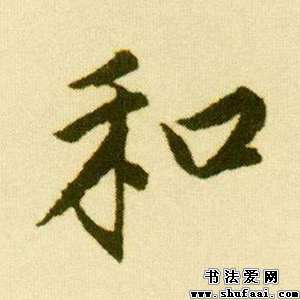 和
书法爱网
www.shufaai.com